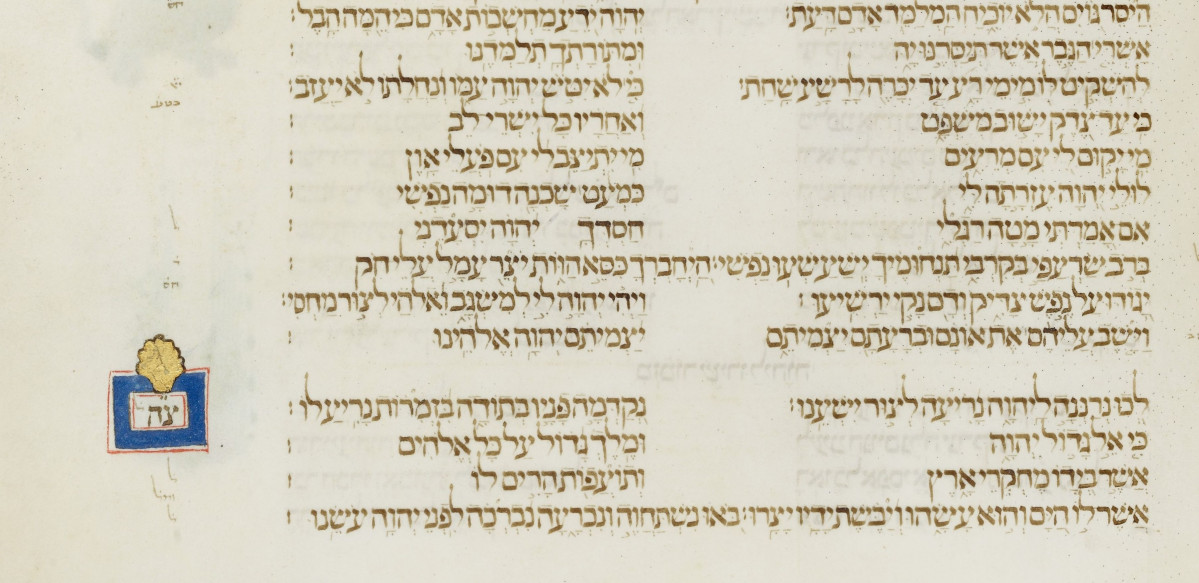 היסר גוים הלא יוכיח המלמד אדם דעת׃ יהוה ידע מחשבות אדם כי המה הבל׃
אשרי הגבר אשר תיסרנו יה ומתורתך תלמדנו׃
להשקיט לו מימי רע עד יכרה לרשע שחת׃ כי לא יטש יהוה עמו ונחלתו לא יעזב׃
כי עד צדק ישוב משפט ואחריו כל ישרי לב׃
מי יקום לי עם מרעים מי יתיצב לי עם פעלי און׃
לולי יהוה עזרתה לי כמעט שכנה דומה נפשי׃
אם אמרתי מטה רגלי חסדך יהוה יסעדני׃
ברב שרעפי בקרבי תנחומיך ישעשעו נפשי׃ היחברך כסא הוות יצר עמל עלי חק׃
יגודו על נפש צדיק ודם נקי ירשיעו׃ ויהי יהוה לי למשגב ואלהי לצור מחסי׃
וישב עליהם את אונם וברעתם יצמיתם יצמיתם יהוה אלהינו׃
לכו נרננה ליהוה נריעה לצור ישענו׃ נקדמה פניו בתודה בזמרות נריע לו׃
צה
כי אל גדול יהוה ומלך גדול על כל אלהים׃
אשר בידו מחקרי ארץ ותועפות הרים לו׃
אשר לו הים והוא עשהו ויבשת ידיו יצרו׃ באו נשתחוה ונכרעה נברכה לפני יהוה עשנו׃